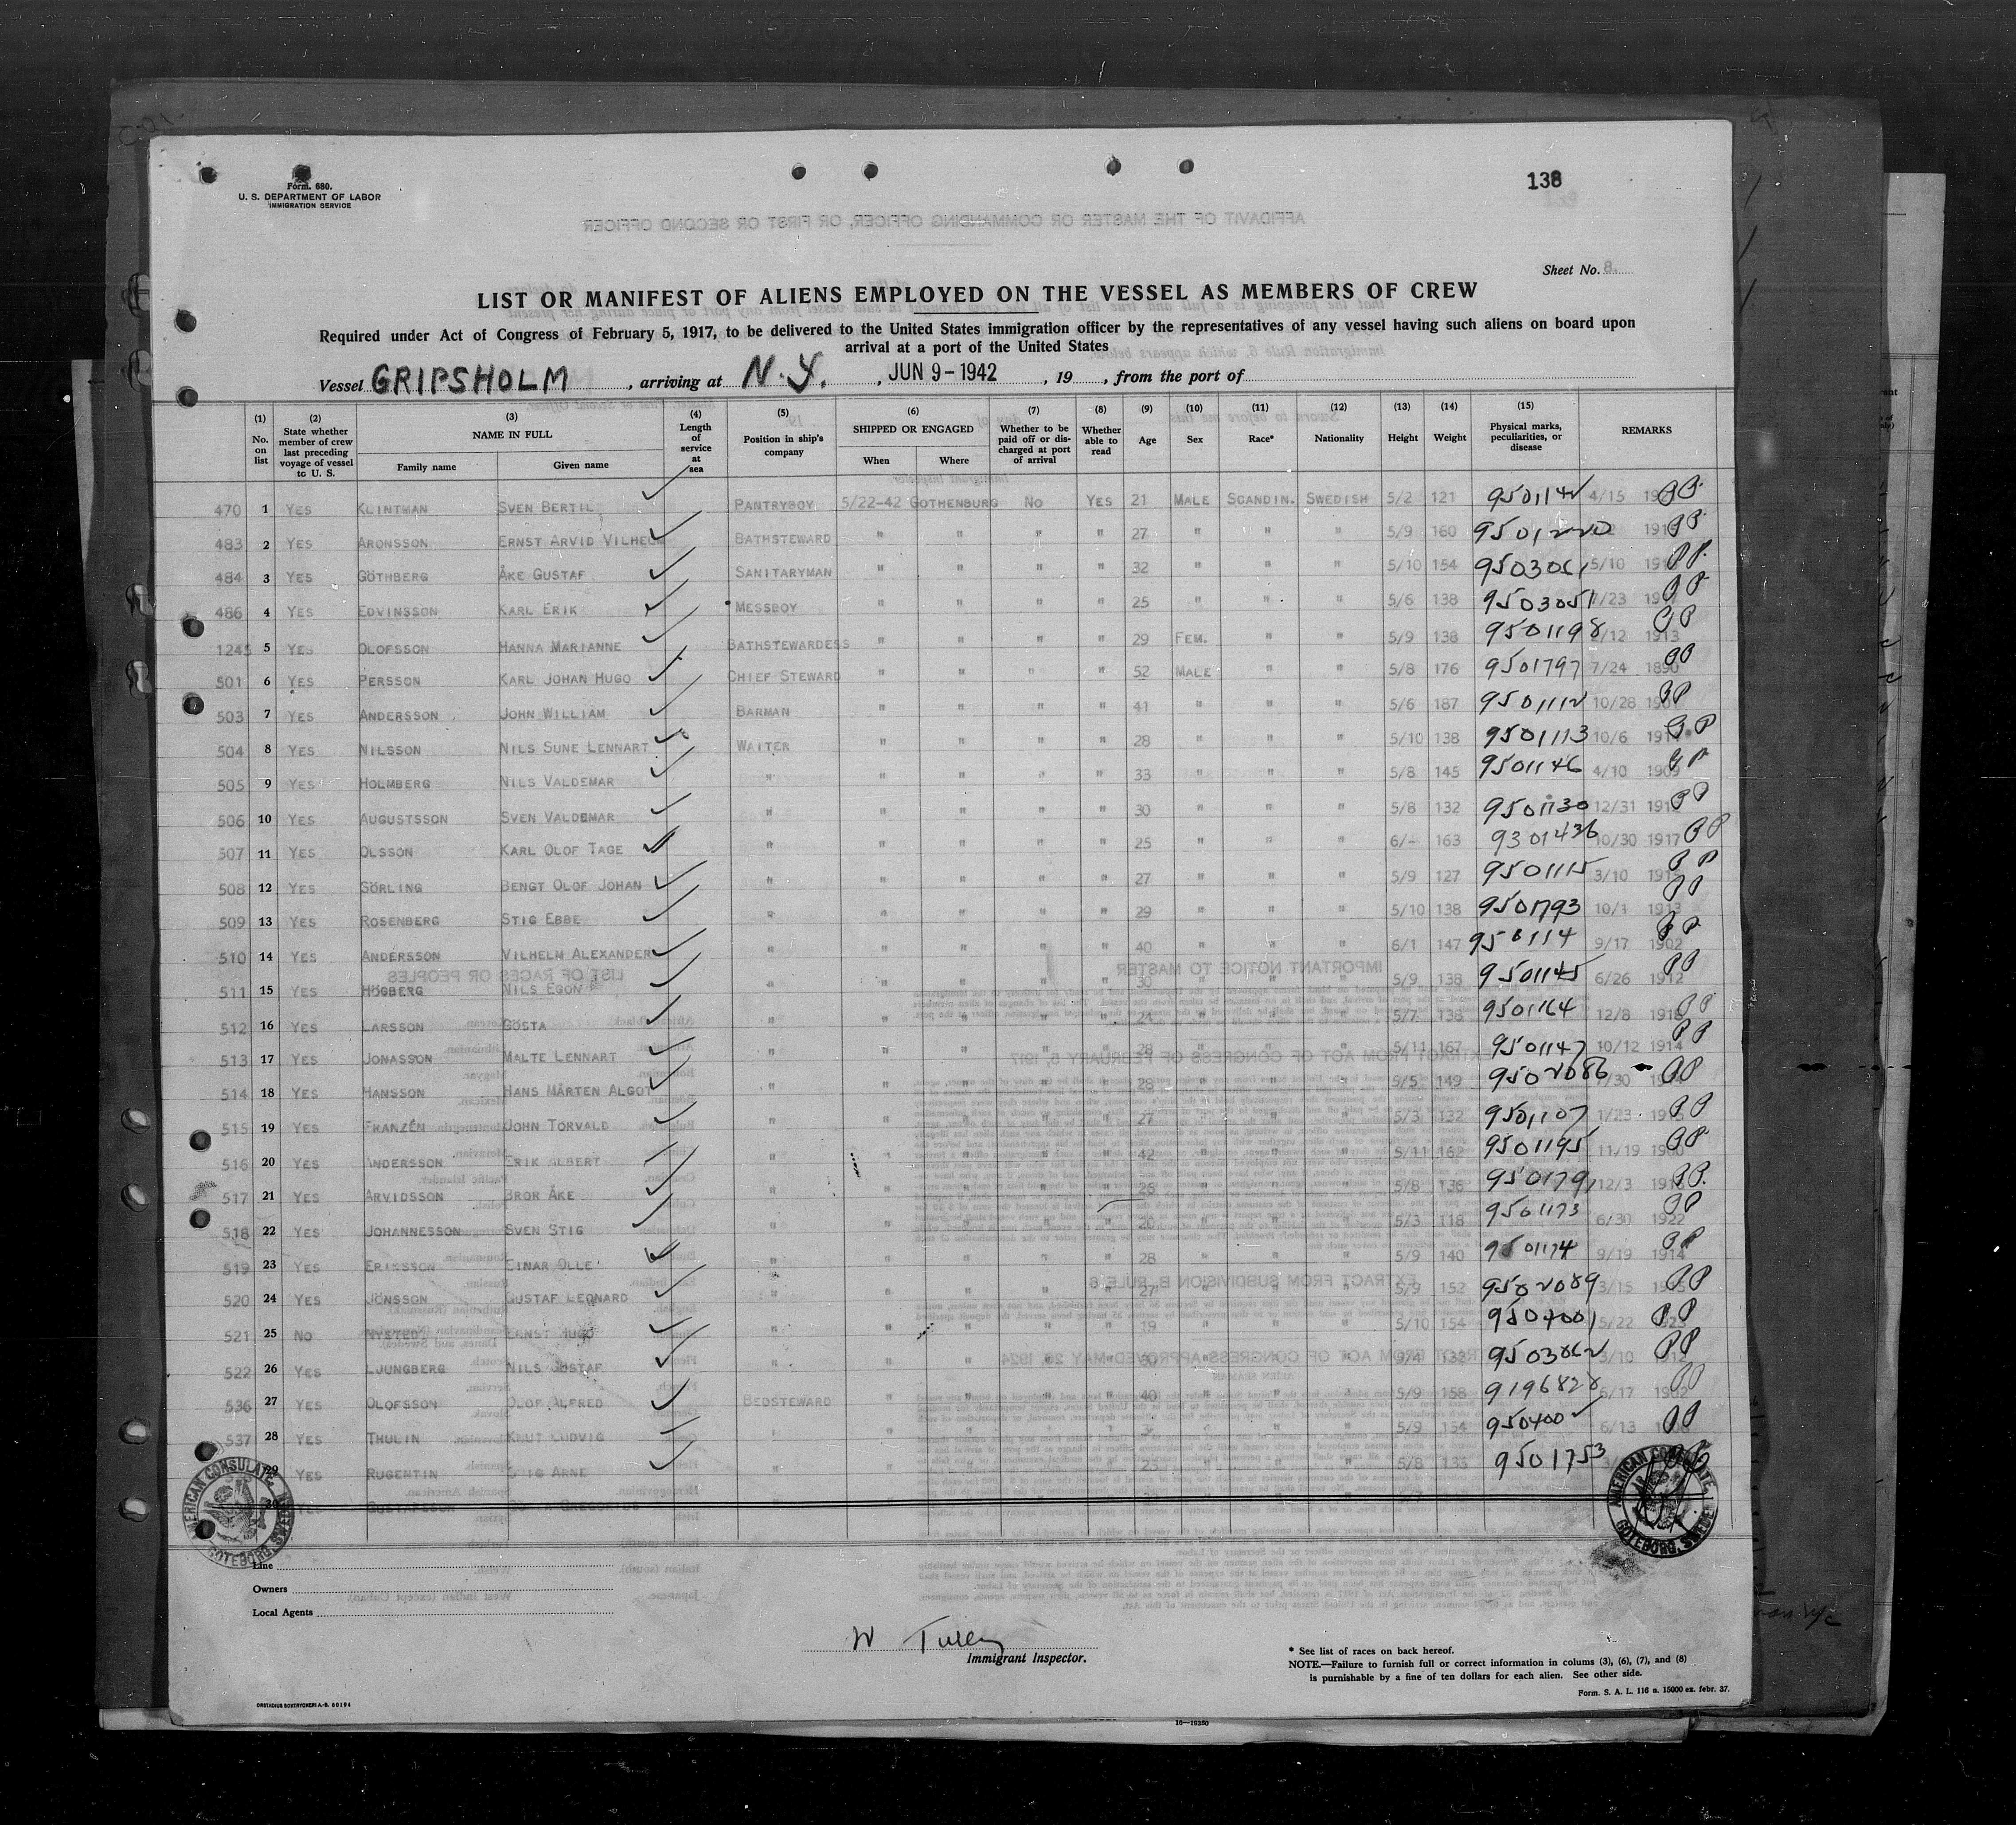 138
Form. 680.
U. S. DEPARTMENT OF LABOR
IMMIGRATION SERVICE
AFFIDAVIT OF THE MASTER OR COMMANDING OFFICER, OR FIRST OR SECOND OFFICER
Sheet No. 8.
LIST OR MANIFEST OF ALIENS EMPLOYED ON THE VESSEL AS MEMBERS OF CREW
Required under Act of Congress of February 5, 1917, to be delivered to the United States immigration officer by the representatives of any vessel having such aliens on board upon
arrival at a port of the United States
Vessel GRIPSHOLM, arriving at N.Y., JUN 9-1942, 19, from the port of
(1) No. on list (2) State whether member of crew last preceding voyage of vessel to U. S. (3) NAME IN FULL Family name Given name (4) Length of service at sea (5) Position in ship's company (6) SHIPPED OR ENGAGED When Where (7) Whether to be paid off or discharged at port of arrival (8) Whether able to read (9) Age (10) Sex (11) Race* (12) Nationality (13) Height (14) Weight (15) Physical marks, peculiarities, or disease REMARKS
470 1 YES KLINTMAN SVEN BERTIL PANTRYBOY 5/22-42 GOTHENBURG NO YES 21 MALE SCANDIN. SWEDISH 5/2 121 4/15 PP
483 2 YES ARONSSON ERNST ARVID VILHELM BATHSTEWARD " " " " 27 " " " 5/9 160 PP
484 3 YES GÖTHBERG ÅKE GUSTAF SANITARYMAN " " " " 32 " " " 5/10 154 9503061 5/10 PP
486 4 YES EDVINSSON KARL ERIK MESSBOY " " " " 25 " " " 5/6 138 9503051 7/23 PP
1245 5 YES OLOFSSON HANNA MARIANNE BATHSTEWARDESS " " " " 29 FEM. " " 5/9 138 9501198 2/12 1913 PP
501 6 YES PERSSON KARL JOHAN HUGO CHIEF STEWARD " " " " 52 MALE " " 5/8 176 9501797 7/24 1890 PP
503 7 YES ANDERSSON JOHN WILLIAM BARMAN " " " " 41 " " " 5/6 187 9501112 10/28 PP
504 8 YES NILSSON NILS SUNE LENNART WAITER " " " " 28 " " " 5/10 138 9501113 10/6 PP
505 9 YES HOLMBERG NILS VALDEMAR " " " " " 33 " " " 5/8 145 9501146 4/10 1909 PP
506 10 YES AUGUSTSSON SVEN VALDEMAR " " " " " 30 " " " 5/8 132 9501130 12/31 PP
507 11 YES OLSSON KARL OLOF TAGE " " " " " 25 " " " 6/- 163 9301436 10/30 1917 PP
508 12 YES SÖRLING BENGT OLOF JOHAN " " " " " 27 " " " 5/9 127 9501115 3/10 PP
509 13 YES ROSENBERG STIG EBBE " " " " " 29 " " " 5/10 138 9501793 10/1 1913 PP
510 14 YES ANDERSSON VILHELM ALEXANDER " " " " " 40 " " " 6/1 147 950114 9/17 1902 PP
511 15 YES HÖGBERG NILS EGON " " " " " 30 " " " 5/9 138 9501145 6/26 1912 PP
512 16 YES LARSSON GÖSTA " " " " " 24 " " " 5/7 138 9501164 12/8 PP
513 17 YES JONASSON MALTE LENNART " " " " " 28 " " " 5/11 167 9501147 10/12 1914 PP
514 18 YES HANSSON HANS MÅRTEN ALGOT " " " " " 28 " " " 5/5 149 9502086 7/30 PP
515 19 YES FRANZÉN JOHN TORVALD " " " " " 27 " " " 5/3 132 9501107 1/23 PP
516 20 YES ANDERSSON ERIK ALBERT " " " " " 42 " " " 5/11 162 9501195 11/19 1900 PP
517 21 YES ARVIDSSON BROR ÅKE " " " " " 26 " " " 5/8 136 9501791 12/3 PP
518 22 YES JOHANNESSON SVEN STIG " " " " " 20 " " " 5/3 118 9501173 6/30 1922 PP
519 23 YES ERIKSSON EINAR OLLE " " " " " 28 " " " 5/9 140 9501174 9/19 1914 PP
520 24 YES JÖNSSON GUSTAF LEONARD " " " " " 27 " " " 5/9 152 9502089 3/15 PP
521 25 NO NYSTEDT ERNST HUGO " " " " " 19 " " " 5/10 154 9504001 5/22 PP
522 26 YES LJUNGBERG NILS GUSTAF " " " " " 30 " " " 132 9503062 3/10 1912 PP
536 27 YES OLOFSSON OLOF ALFRED BEDSTEWARD " " " " 40 " " " 5/9 158 9196828 6/17 1902 PP
537 28 YES THULIN KNUT LUDVIG " " " " " " " " 5/9 154 9504002 6/13 PP
29 YES RUGENTIN STIG ARNE " " " " " " " " 5/8 133 9501753
30 YES GUSTAFSSON GREGORIUS
AMERICAN CONSULATE GOTEBORG, SWEDEN
AMERICAN CONSULATE GOTEBORG, SWEDEN
Line
Owners
Local Agents
W Tully
Immigrant Inspector.
* See list of races on back hereof.
NOTE.—Failure to furnish full or correct information in colums (3), (6), (7), and (8)
is purnishable by a fine of ten dollars for each alien. See other side.
Form. S. A. L. 116 n. 15000 ex. febr. 37.
ORSTADIUS BOKTRYCKERI A.-B. 60194
16—19350